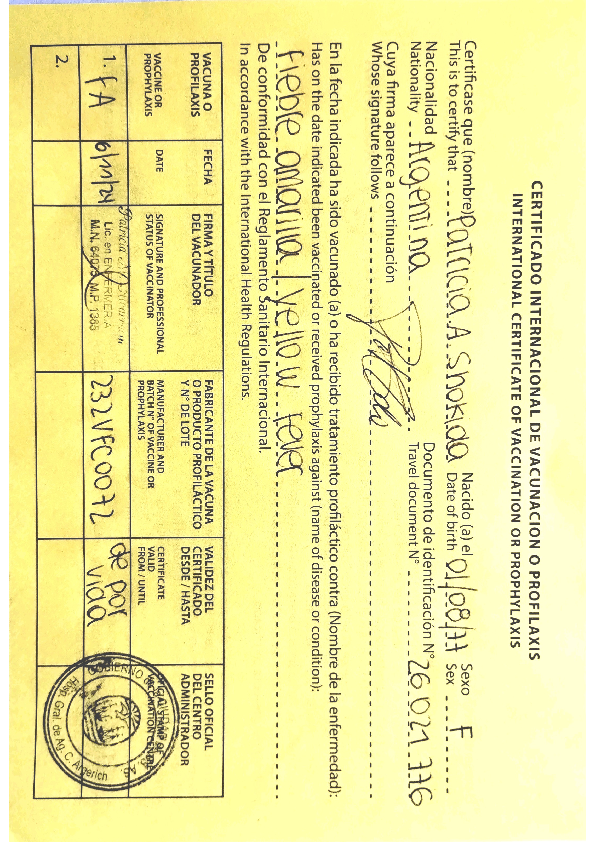 CERTIFICADO INTERNACIONAL DE VACUNACION O PROFILAXIS
INTERNATIONAL CERTIFICATE OF VACCINATION OR PROPHYLAXIS
Certifícase que (nombre) Patricia A. Shokida Nacido (a) el 01/08/77 Sexo F
This is to certify that Date of birth Sex
Nacionalidad Argentina Documento de identificación N° 26 021.776
Nationality Travel document N°
Cuya firma aparece a continuación
Whose signature follows
En la fecha indicada ha sido vacunado (a) o ha recibido tratamiento profiláctico contra (Nombre de la enfermedad):
Has on the date indicated been vaccinated or received prophylaxis against (name of disease or condition):
Fiebre amarilla / Yellow Fever
De conformidad con el Reglamento Sanitario Internacional.
In accordance with the International Health Regulations.
VACUNA O PROFILAXIS
VACCINE OR PROPHYLAXIS
FECHA
DATE
FIRMA Y TÍTULO DEL VACUNADOR
SIGNATURE AND PROFESSIONAL STATUS OF VACCINATOR
FABRICANTE DE LA VACUNA O PRODUCTO PROFILÁCTICO Y N° DE LOTE
MANUFACTURER AND BATCH N° OF VACCINE OR PROPHYLAXIS
VALIDEZ DEL CERTIFICADO DESDE / HASTA
CERTIFICATE VALID FROM / UNTIL
SELLO OFICIAL DEL CENTRO ADMINISTRADOR
OFICIAL STAMP OF VACCINATION CENTRE
1. FA 6/11/24 232VFC0072 de por vida
Patricia
Lic. en ENFERMERIA
M.P. 1385
GOBIERNO
Hosp. Gral. de Ag. C. Argerich
2.